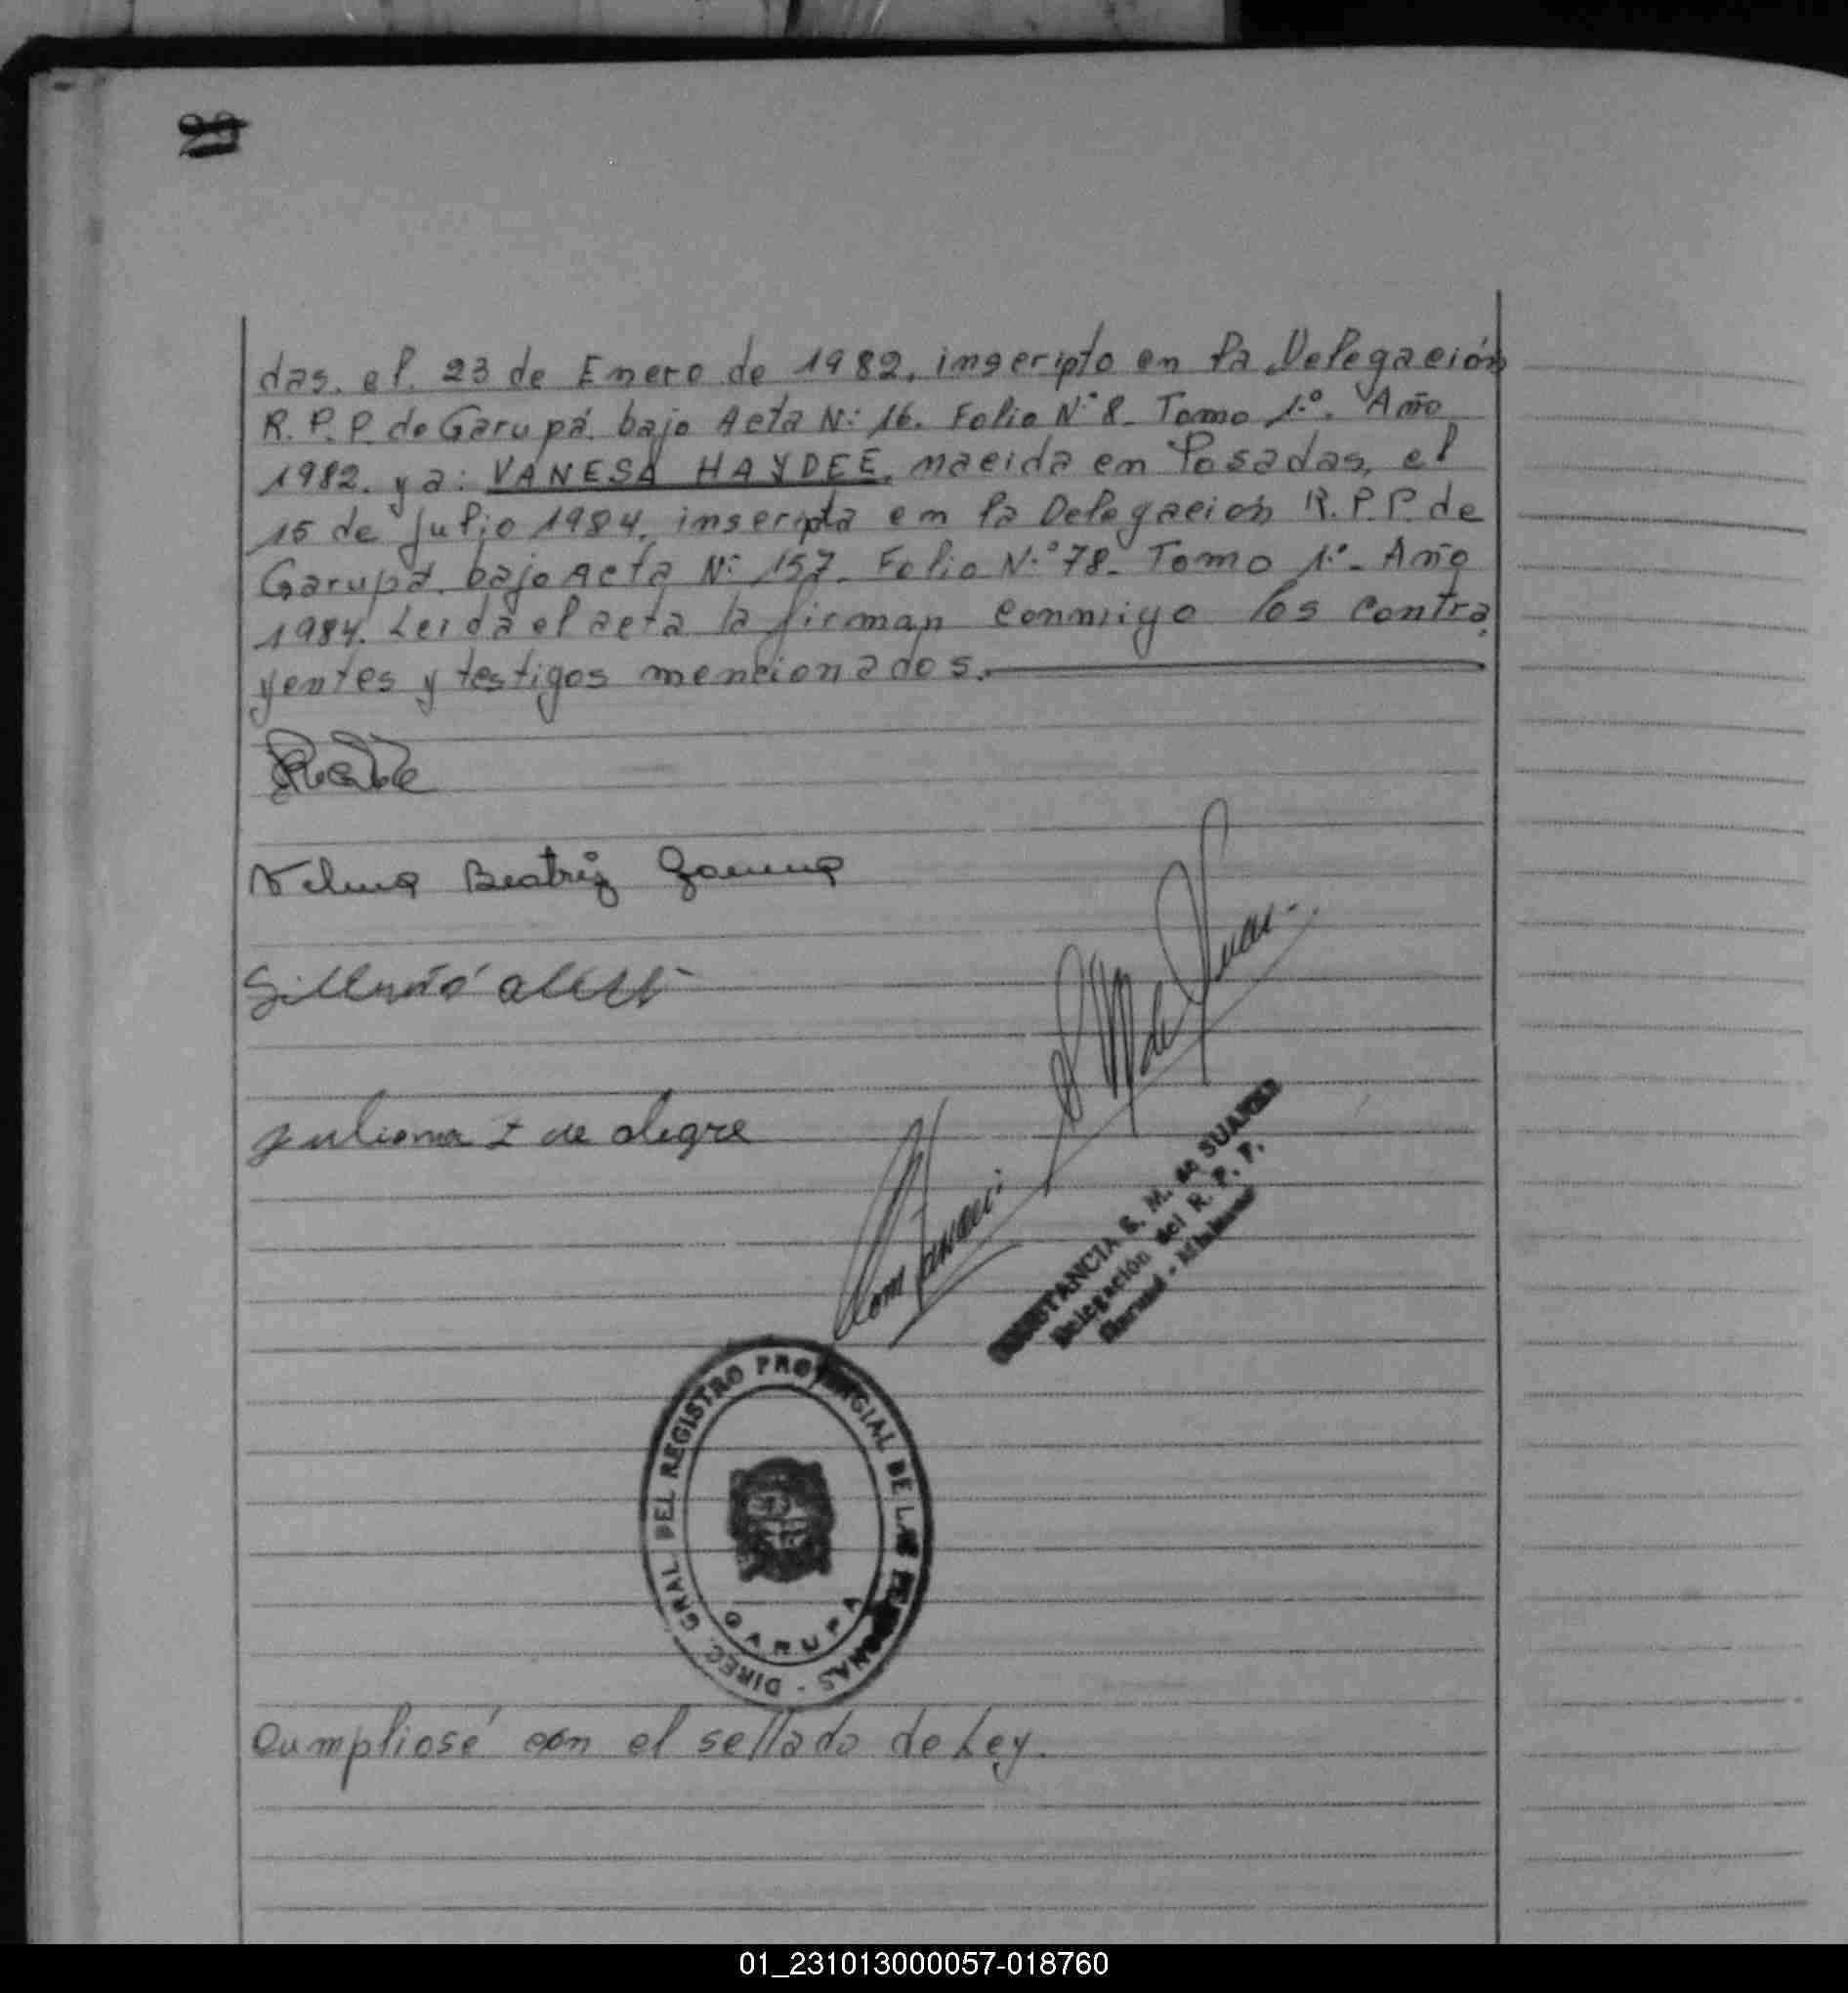 das. el. 23 de Enero de 1982, inscripto en la Delegación
R. P. P. de Garupá. bajo Acta N: 16. Folio N° 8. Tomo 1.°. Año
1982. y a: VANESA HAYDEE, nacida en Posadas, el
15 de julio 1984, inscripta en la Delegación R. P. P. de
Garupá. bajo Acta N: 157. Folio N.° 78. Tomo 1.° - Año
1984. Leida el acta la firman conmigo los contra
yentes y testigos mencionados.
Beatriz
juliana de alegre
S. M. de SUAREZ
Delegación del R. P. P.
DIREC. GRAL DEL REGISTRO PROVINCIAL DE LAS PERSONAS -
GARUPA
Cumpliosé con el sellado de Ley.
01_231013000057-018760